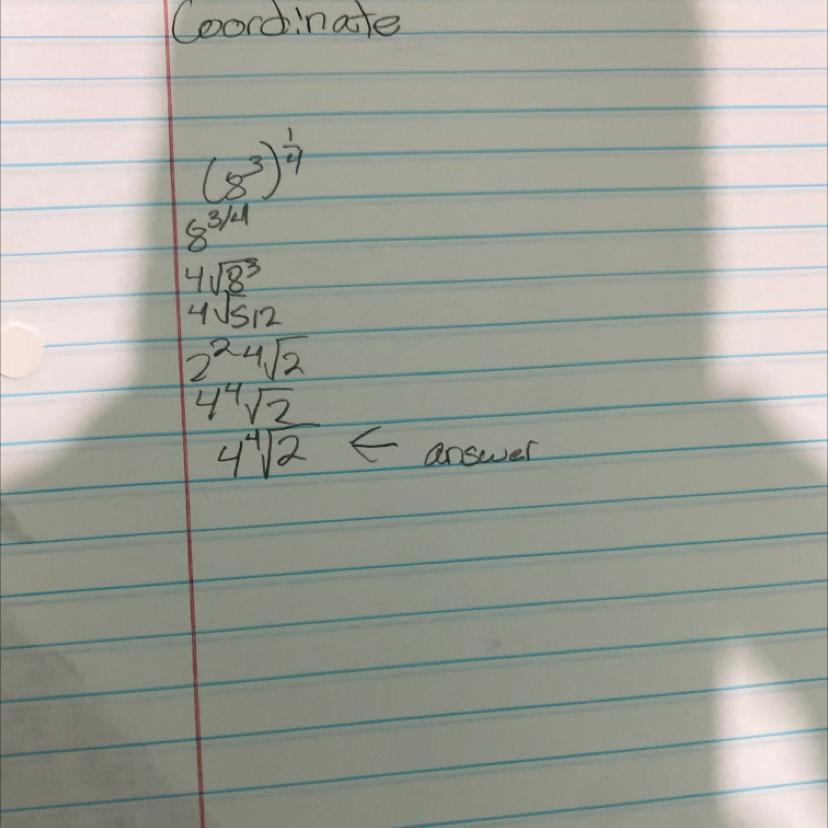 Coordinate
(8³)^¼
8^3/4
4√8³
4√512
2² 4√2
4⁴√2
4⁴√2 ← answer